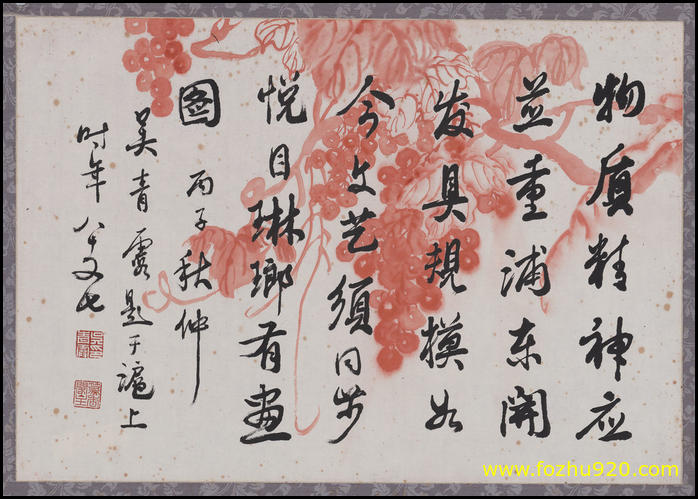 物质精神应
並重浦东開
发具規模如
今文艺須同步
悦目琳瑯有画
图 丙子秋仲
吴青霞题于滬上
时年八十又七
www.fozhu920.com